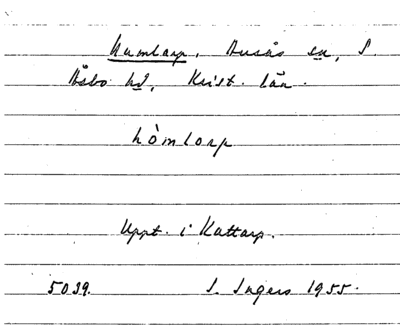 Humlarp. Ausås sn, S.
Åsbo hd, Krist. län.
hòmlorp
Uppt. i Kattarp.
5039. S. Ingers 1955.